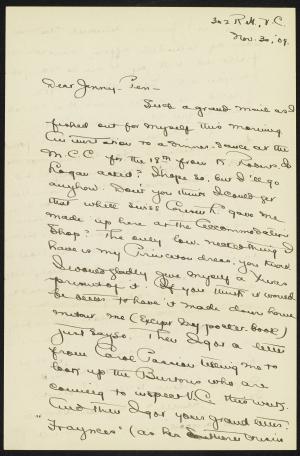 302 R.H., V.C.
Nov. 30, '09.
Dear Jenny-Pen-
Such a grand mail as I
fished out for myself this morning
An invitation to a dinner-dance at the
M.C.C. for the 18th from K.
Logan asked? I hope so, but I'll go
anyhow. Don't you think I could get
that white swiss Cousin L. gave me
made up here at the Accommodation
Shop? The only low necked thing I
have is my Princeton dress, you know.
I would gladly give myself a Xmas
present of it. If you think it would
be better to have it made down home
without me (except my pocket-book)
just say so. Then I got a letter
from Carol telling me to
look up the who are
coming to inspect V.C. this week.
And then I got your grand letter.
"Fraynces" (as her Southern